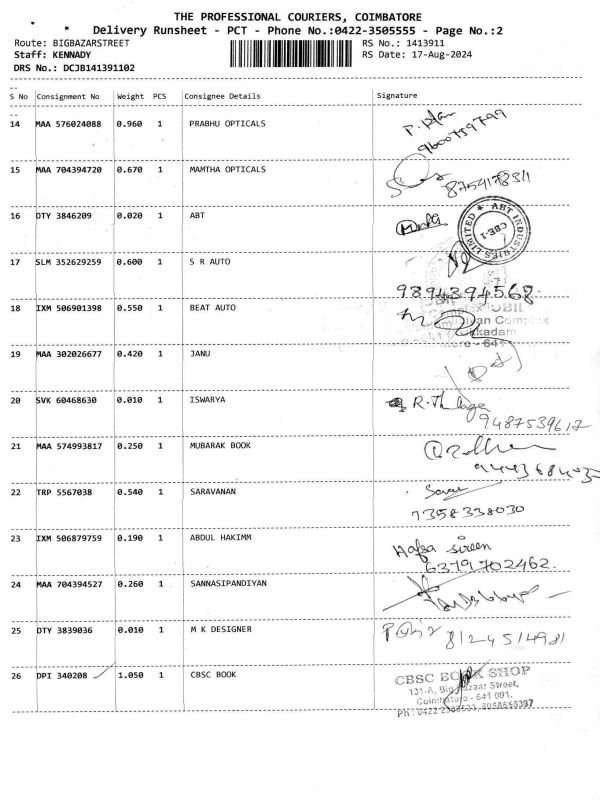 THE PROFESSIONAL COURIERS, COIMBATORE
Delivery Runsheet - PCT - Phone No.:0422-3505555 - Page No.:2
Route: BIGBAZARSTREET RS No.: 1413911
Staff: KENNADY RS Date: 17-Aug-2024
DRS No.: DCJB141391102
S No Consignment No Weight PCS Consignee Details Signature
14 MAA 576024088 0.960 1 PRABHU OPTICALS
9600759799
15 MAA 704394720 0.670 1 MAMTHA OPTICALS
8754178311
16 OTY 3846209 0.020 1 ABT
ABT INDUSTRIES LIMITED
CBE-1
17 SLM 352629259 0.600 1 S R AUTO
9894394568
18 IXM 506901398 0.550 1 BEAT AUTO
19 MAA 302026677 0.420 1 JANU
20 SVK 60468630 0.010 1 ISWARYA
9487539617
21 MAA 574993817 0.250 1 MUBARAK BOOK
22 TRP 5567038 0.540 1 SARAVANAN
7358338030
23 IXM 506879759 0.190 1 ABDUL HAKIMM
Hafsa sireen
6379702462
24 MAA 704394527 0.260 1 SANNASIPANDIYAN
25 OTY 3839036 0.010 1 M K DESIGNER
8124514981
26 DPI 340208 1.050 1 CBSC BOOK
CBSC BOOK SHOP
131-A, Big Bazaar Street,
Coimbatore - 641 001.